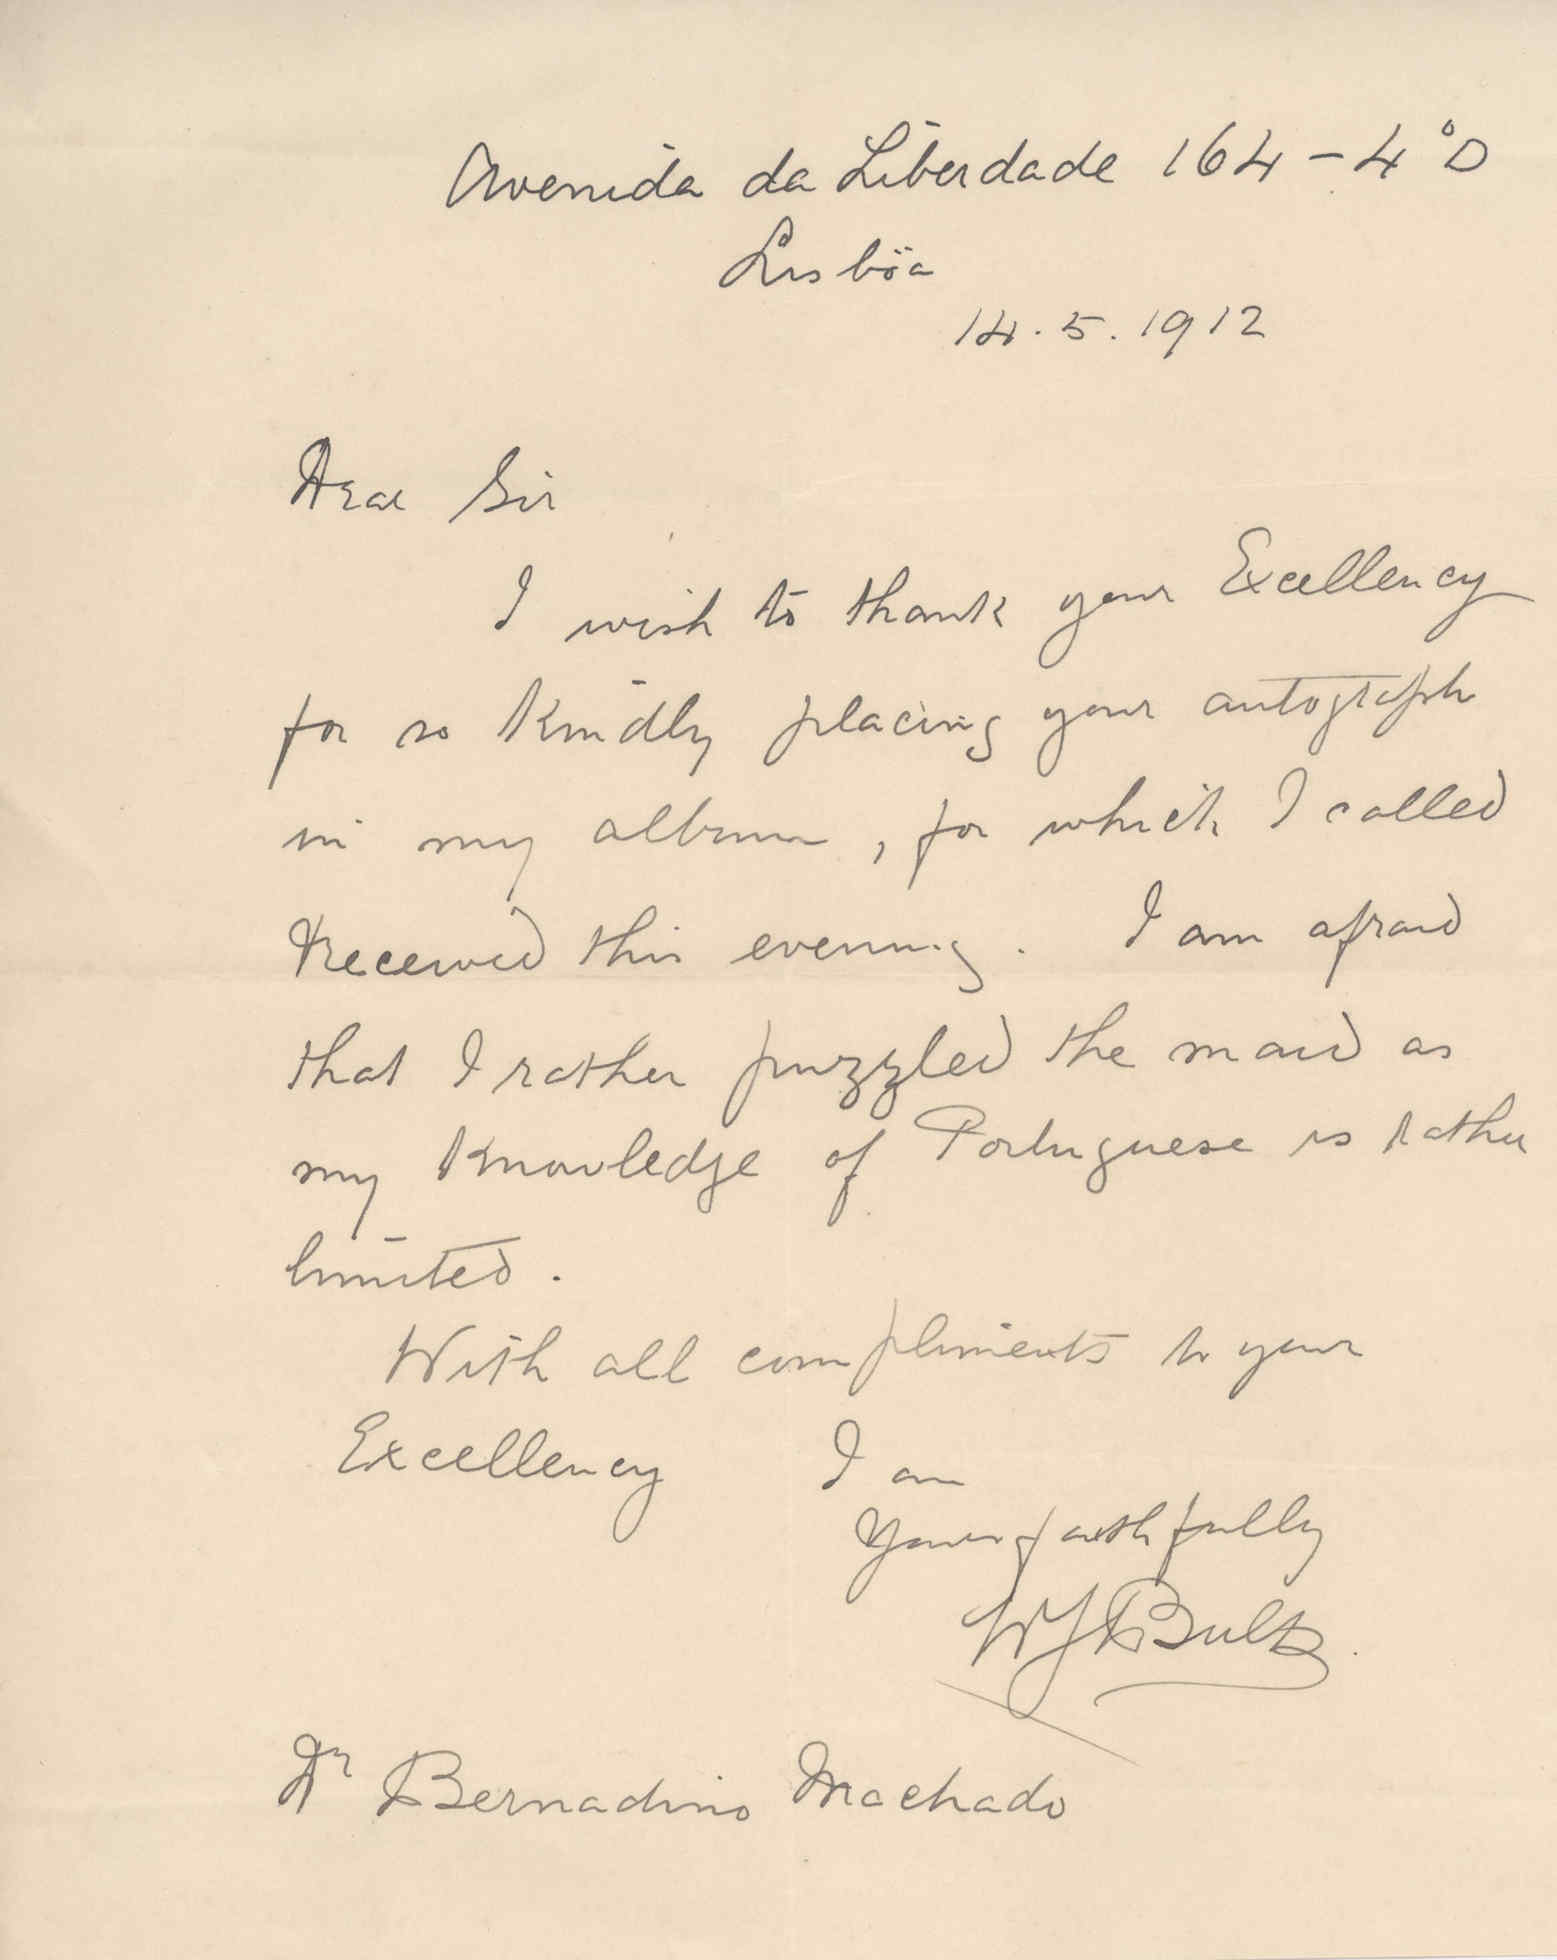 Avenida da Liberdade 164 – 4º D
Lisbôa
14. 5. 1912
Dear Sir
I wish to thank your Excellency
for so kindly placing your autograph
in my album, for which I called
received this evening. I am afraid
that I rather puzzled the maid as
my knowledge of Portuguese is rather
limited.
With all compliments to your
Excellency I am
Yours faithfully
Dr Bernadino Machado